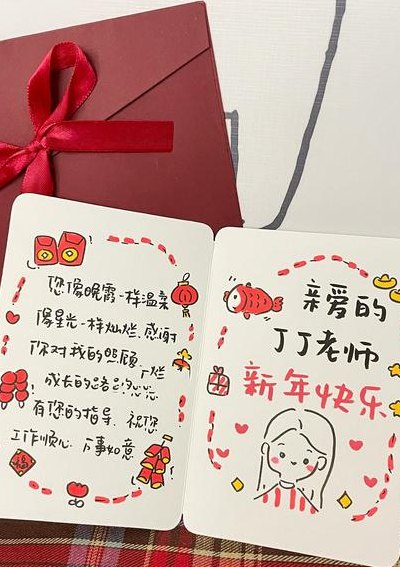 您像晚霞一样温柔
像星光一样灿烂.感谢
你对我的照顾
成长的路
有您的指导.祝您
工作顺心.万事如意
福
亲爱的
丁丁老师
新年快乐